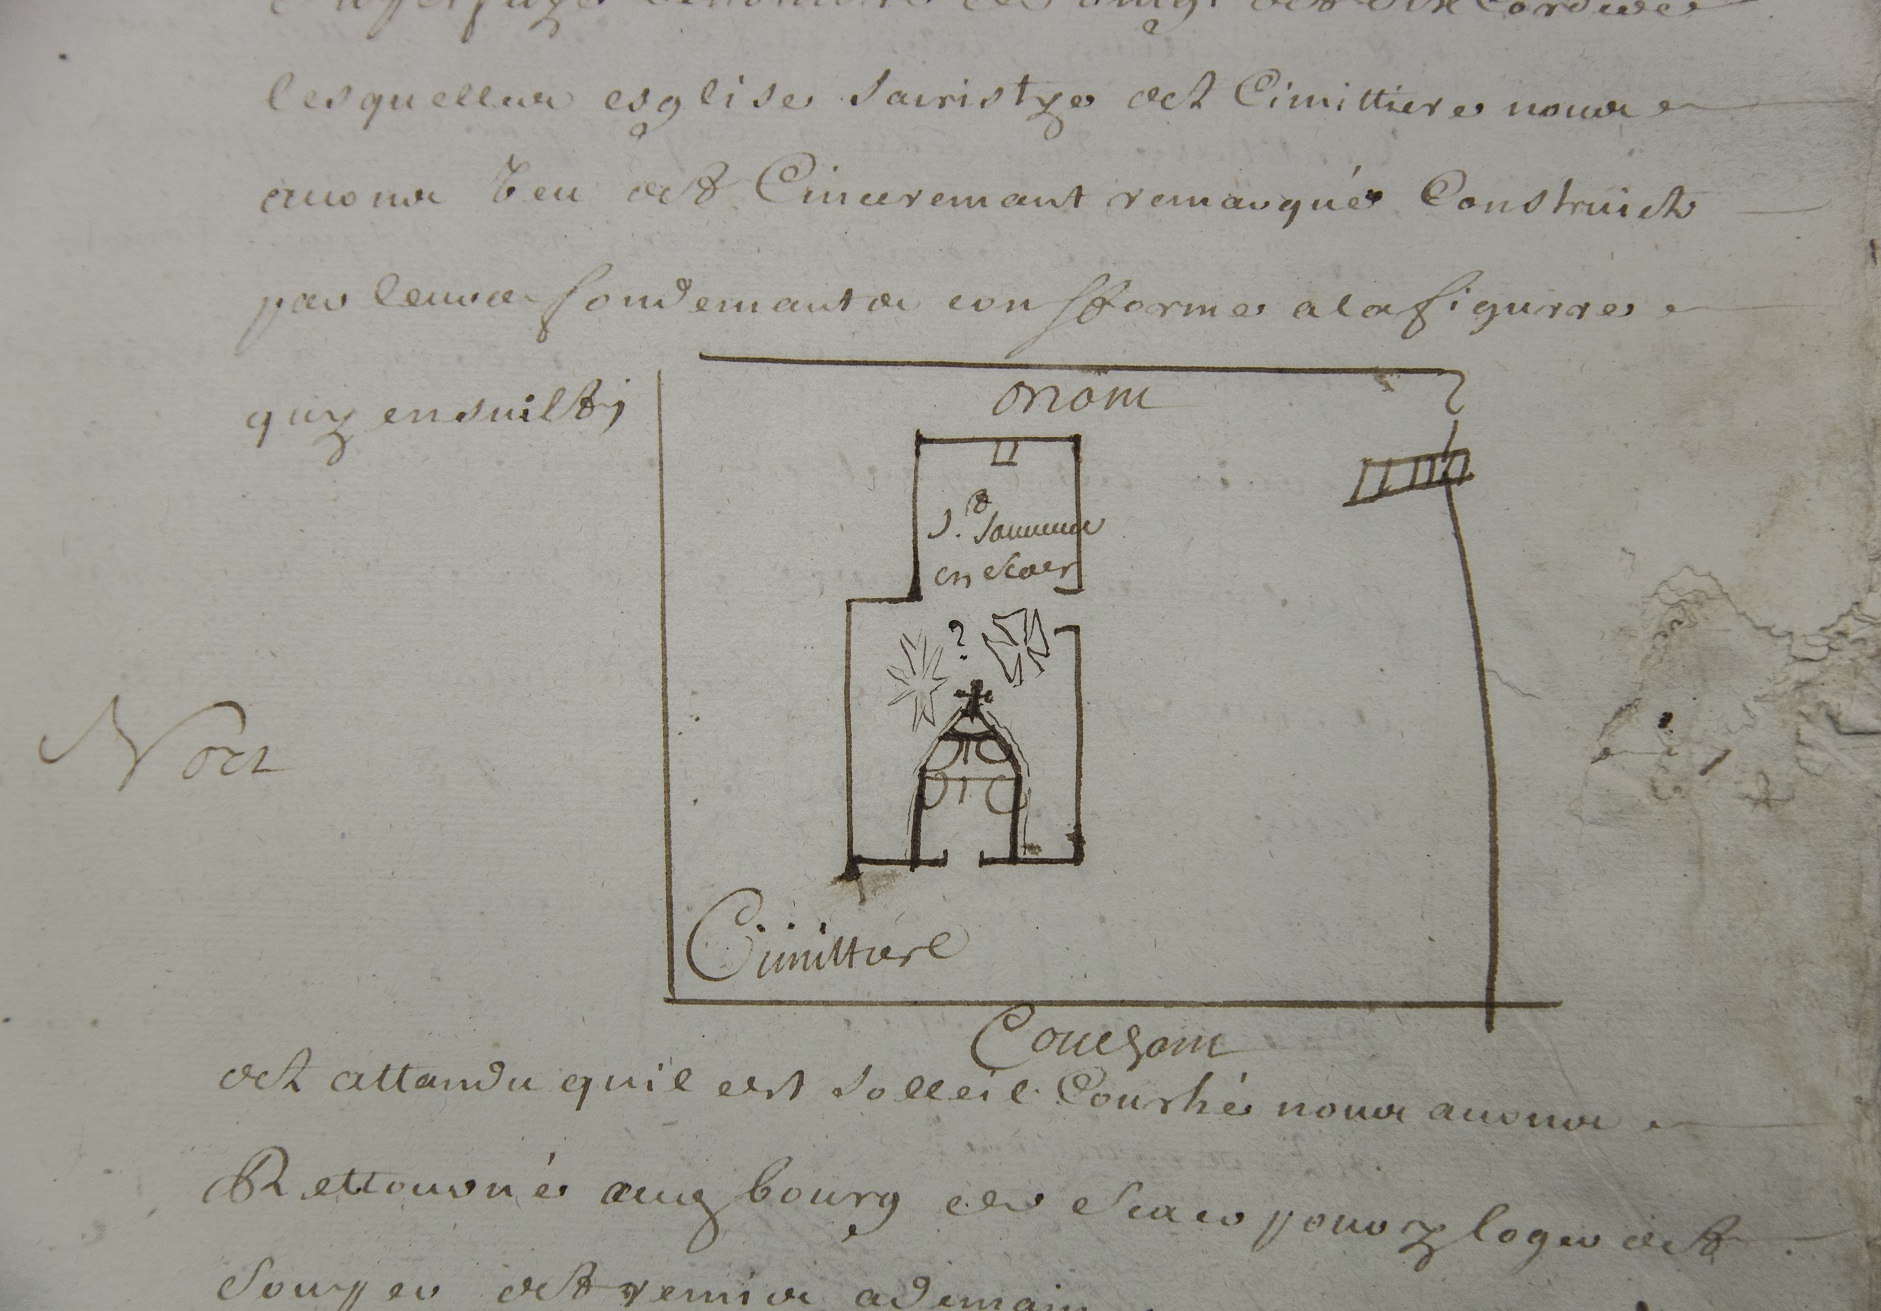 lesquelles esglise sairistye et Cimittiere nous
auons veu et Cinceremant remarqué Construict
par leurs fondemants confforme a la figurre
quy ensuilt;
oriant
St. Jaumes
en Scaer
?
Nort
Cimittiere
Couchant
et attandu quil est solleil Couché nous auons
Rettourné aug bourg de Scaer pour y loger et
Soupper et remis a demain